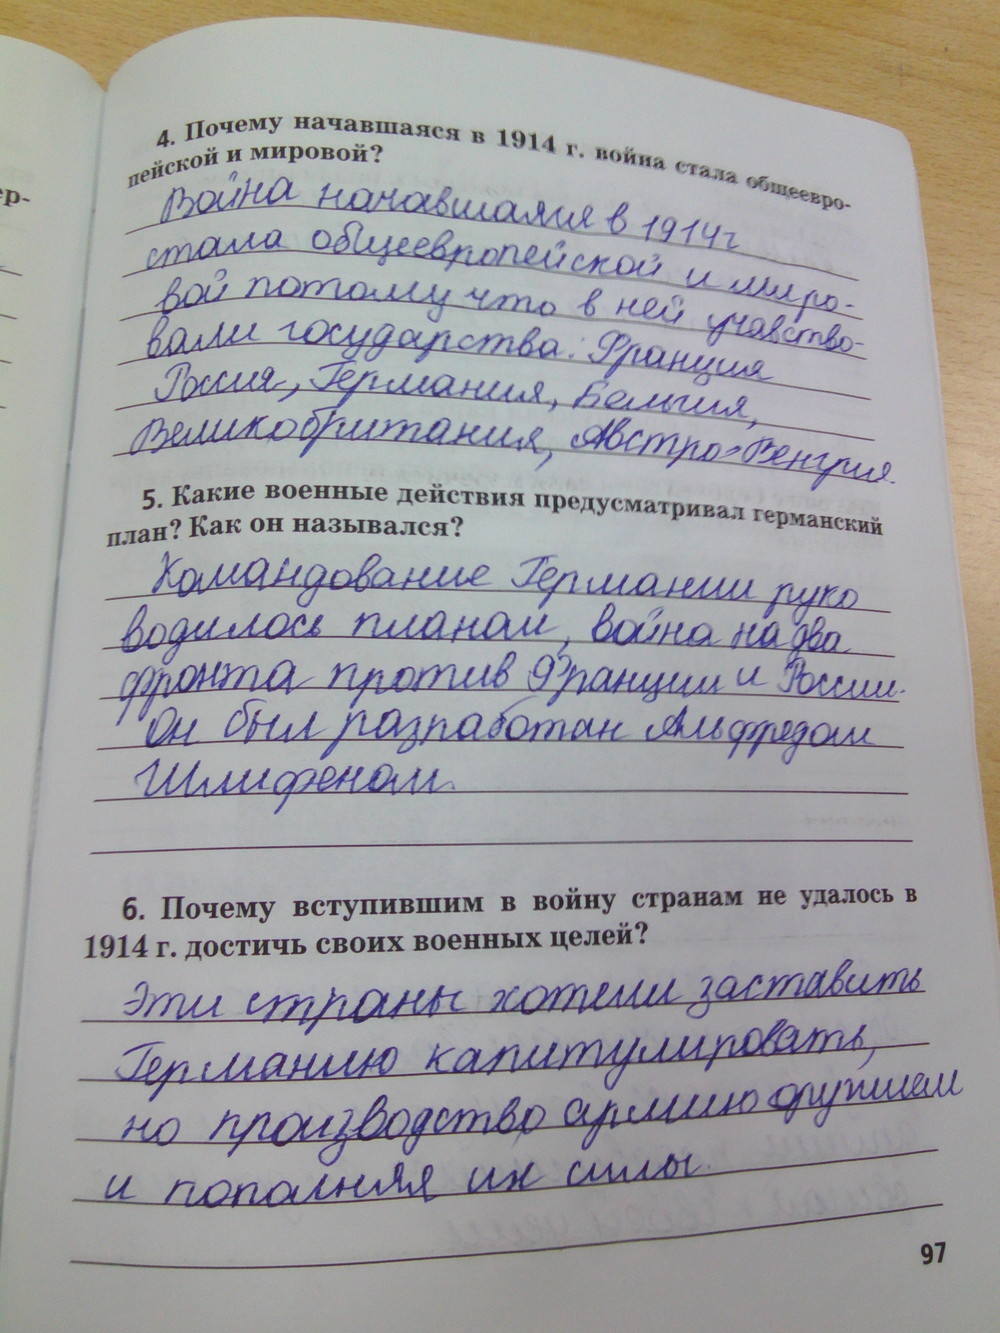 4. Почему начавшаяся в 1914 г. война стала общеевро-
пейской и мировой?
Война начавшаяся в 1914г
стала общеевропейской и миро-
вой потому что в ней учавство-
вали государства: Франция
Россия, Германия, Бельгия,
Великобритания, Австро-Венгрия.
5. Какие военные действия предусматривал германский
план? Как он назывался?
Командование Германии руко
водилось планом, война на два
фронта против Франции и России.
Он был разработан Альфредом
Шлифеном.
6. Почему вступившим в войну странам не удалось в
1914 г. достичь своих военных целей?
Эти страны хотели заставить
Германию капитулировать,
но производство армию оружием
и пополняя их силы.
97
ер-